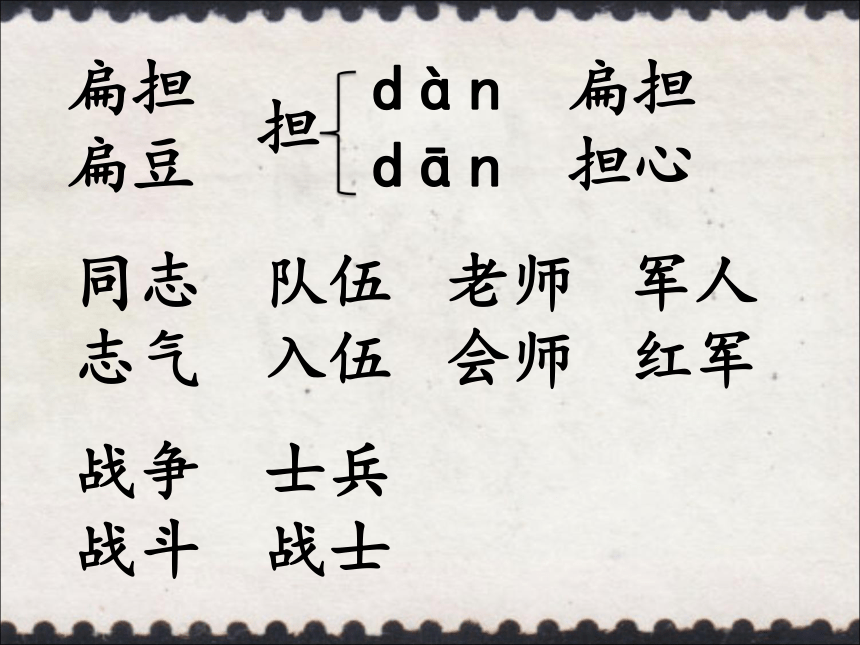 扁担 担 dàn 扁担
扁豆 dān 担心
同志 队伍 老师 军人
志气 入伍 会师 红军
战争 士兵
战斗 战士